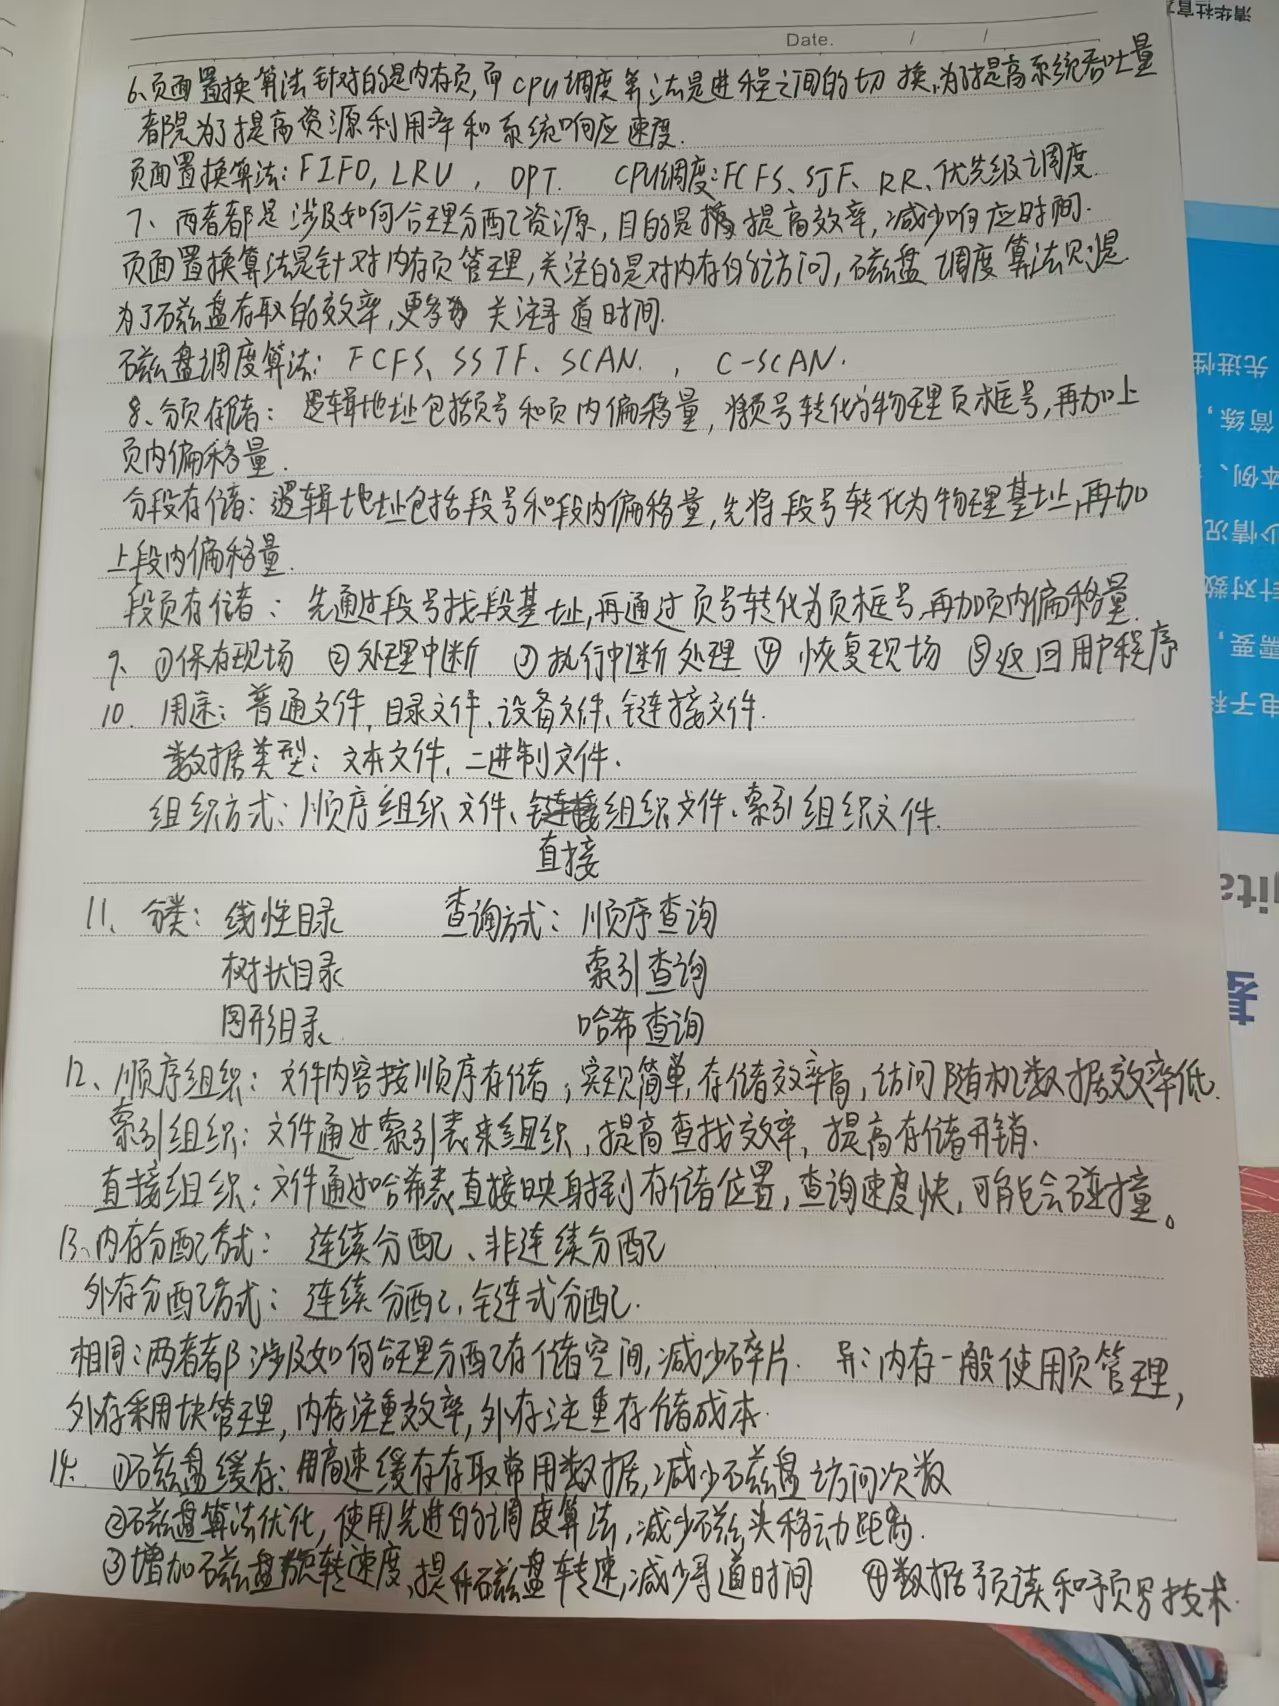 Date. / /
6、页面置换算法针对的是内存页,而CPU调度算法是进程之间的切换,为了提高系统吞吐量
都是为了提高资源利用率和系统响应速度.
页面置换算法:FIFO, LRU , OPT. CPU调度:FCFS、SJF、RR、优先级调度.
7、两者都是涉及如何合理分配资源,目的是提高效率,减少响应时间.
页面置换算法是针对内存页管理,关注的是对内存的访问,磁盘调度算法则是
为了磁盘存取的效率,更多 关注寻道时间.
磁盘调度算法: FCFS、SSTF、SCAN. , C-SCAN.
8、分页存储: 逻辑地址包括页号和页内偏移量,将页号转化为物理页框号,再加上
页内偏移量.
分段存储:逻辑地址包括段号和段内偏移量,先将段号转化为物理基址,再加
上段内偏移量.
段页存储: 先通过段号找段基址,再通过页号转化为页框号,再加页内偏移量.
9、①保存现场 ②处理中断 ③执行中断处理 ④ 恢复现场 ⑤返回用户程序
10. 用途:普通文件、目录文件、设备文件、链接文件.
数据类型:文本文件、二进制文件.
组织方式:顺序组织文件、链接组织文件、索引组织文件.
直接
11、分类: 线性目录 查询方式: 顺序查询
树状目录 索引查询
图形目录 哈希查询
12、顺序组织:文件内容按顺序存储,实现简单,存储效率高,访问随机数据效率低.
索引组织:文件通过索引表来组织,提高查找效率,提高存储开销.
直接组织:文件通过哈希表直接映射到存储位置,查询速度快,可能会碰撞。
13、内存分配方式: 连续分配、非连续分配
外存分配方式: 连续分配,链式分配.
相同:两者都涉及如何合理分配存储空间,减少碎片. 异:内存一般使用页管理,
外存采用块管理,内存注重效率,外存注重存储成本.
14. ①磁盘缓存:用高速缓存存取常用数据,减少磁盘访问次数
②磁盘算法优化,使用先进的调度算法,减少磁头移动距离.
③增加磁盘旋转速度,提升磁盘转速,减少寻道时间 ④数据预读和预写技术.
清华社官
先进性
简练,
本例、
少情况
针对数
需要,
电子科